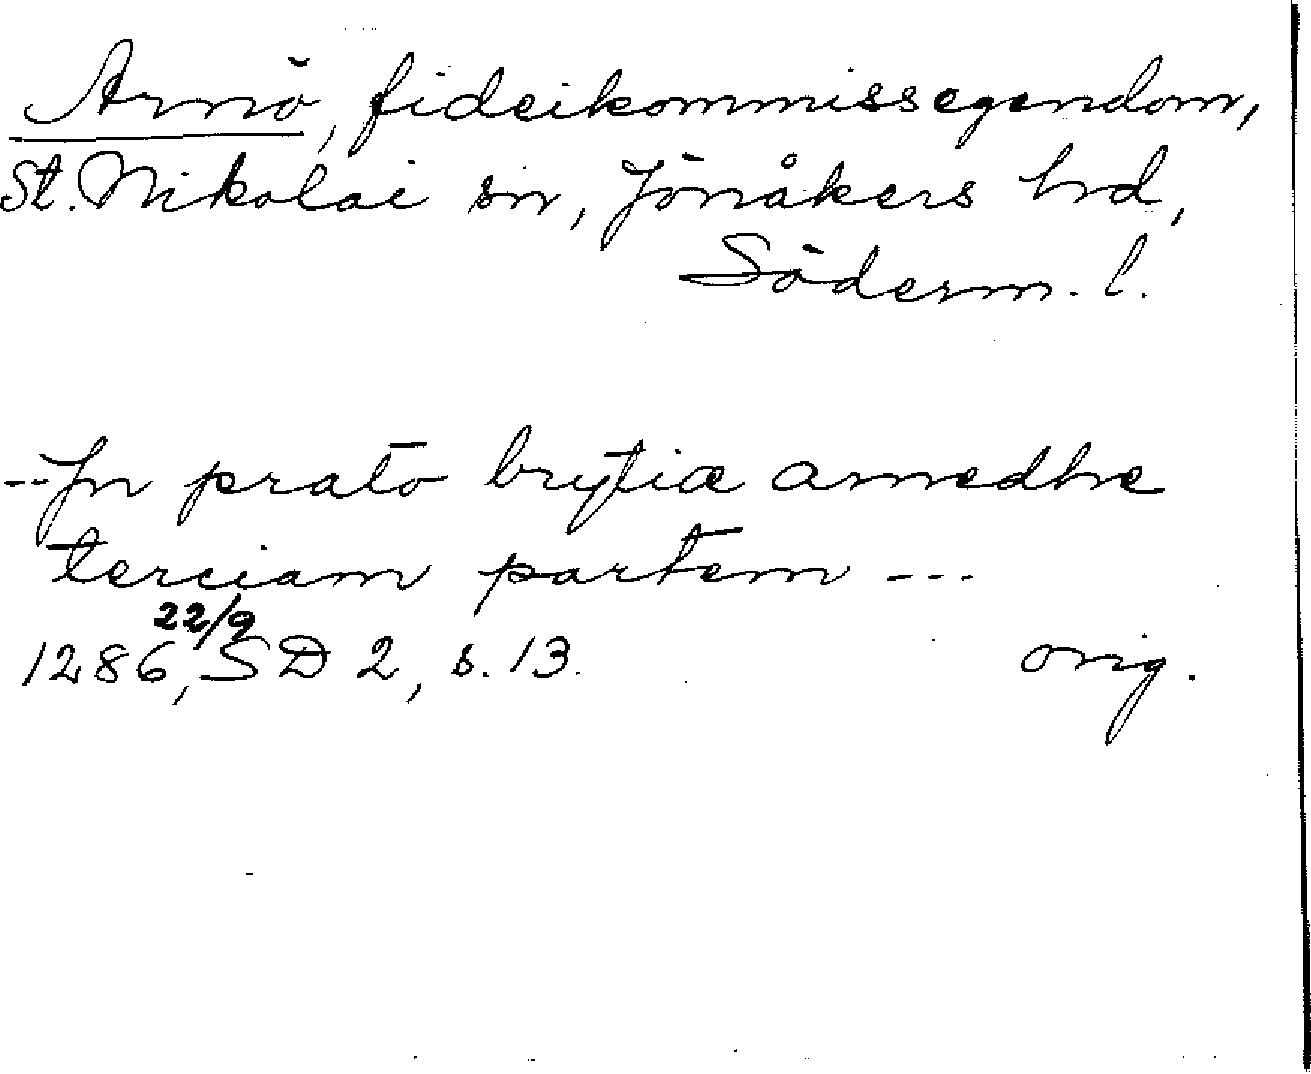 Arnö, fideikommissegendom,
St. Nikolai sn, Jönåkers hrd,
Söderm. l.
--Jn prato brytiæ arnedhe
terciam partem ---
1286 22/9, SD 2, s. 13. orig.